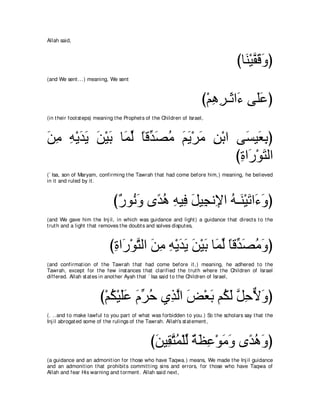 Allah said,
(وَقَفَّيْنَا)
(and We sent...) meaning, We sent
(عَلَى ءَاثَـرِهِمْ)
(in their footsteps) meaning the Prophets of the Children of Israel,
(بِعَيسَى ابْنِ مَرْيَمَ مُصَدِّقاً لِّمَا بَيْنَ يَدَيْهِ مِنَ
التَّوْرَاةِ)
(`Isa, son of Maryam, confirming the Tawrah that had come before him,) meaning, he believed
in it and ruled by it.
(وَءَاتَيْنَـهُ الإِنجِيلَ فِيهِ هُدًى وَنُورٌ)
(and We gave him the Injil, in which was guidance and light) a guidance that directs to the
truth and a light that removes the doubts and solves disputes,
(وَمُصَدِّقاً لِّمَا بَيْنَ يَدَيْهِ مِنَ التَّوْرَاةِ)
(and confirmation of the Tawrah that had come before it,) meaning, he adhered to the
Tawrah, except for the few instances that clarified the truth where the Children of Israel
differed. Allah states in another Ayah that `Isa said to the Children of Israel,
(وَلاٌّحِلَّ لَكُم بَعْضَ الَّذِي حُرِّمَ عَلَيْكُمْ)
(...and to make lawful to you part of what was forbidden to you.) So the scholars say that the
Injil abrogated some of the rulings of the Tawrah. Allah's statement,
(وَهُدًى وَمَوْعِظَةً لِّلْمُتَّقِينَ)
(a guidance and an admonition for those who have Taqwa.) means, We made the Injil guidance
and an admonition that prohibits committing sins and errors, for those who have Taqwa of
Allah and fear His warning and torment. Allah said next,